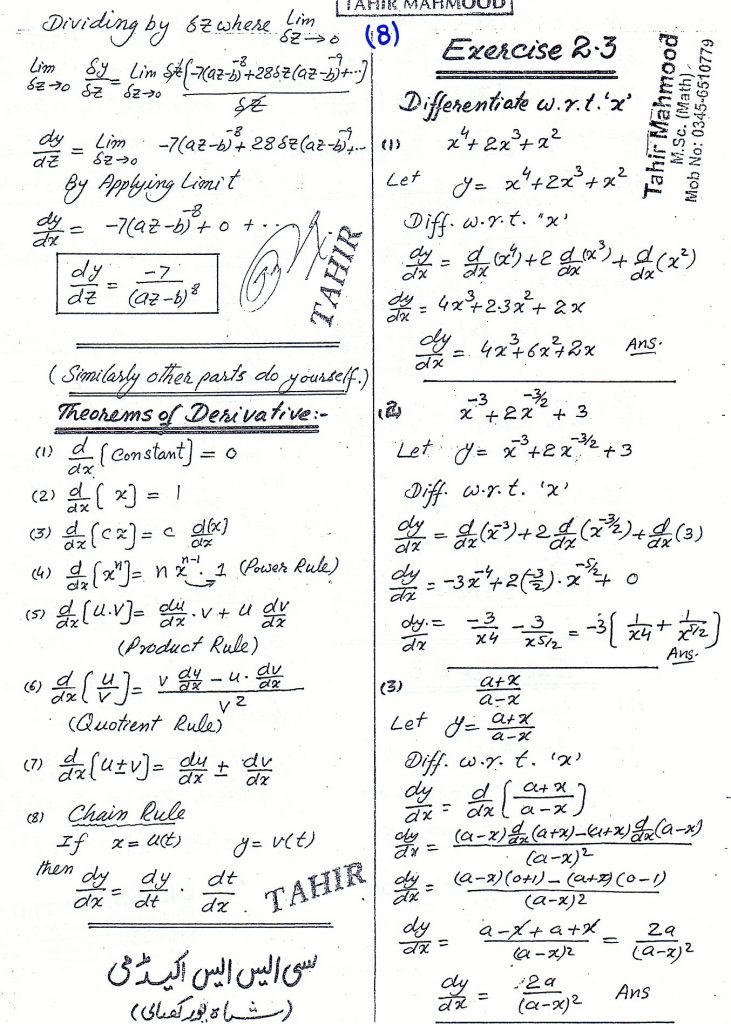 TAHIR MAHMOOD
(8)
Dividing by δz where Lim δz→0
Lim δz→0 δy/δz = Lim δz→0 δz{-7(az-b)^-8+28δz(az-b)^-9+...}/δz
dy/dz = Lim δz→0 -7(az-b)^-8+28δz(az-b)^-9...
By Applying Limit
dy/dx = -7(az-b)^-8+0+...
dy/dz = -7/(az-b)^8
TAHIR
(Similarly other parts do yourself.)
Theorems of Derivative:-
(1) d/dx [constant] = 0
(2) d/dx [x] = 1
(3) d/dx [cx] = c d(x)/dx
(4) d/dx [x^n] = n x^n-1 . 1 (Power Rule)
(5) d/dx [u.v] = du/dx . v + u dv/dx
(Product Rule)
(6) d/dx [u/v] = v du/dx - u . dv/dx / v^2
(Quotient Rule)
(7) d/dx [u±v] = du/dx ± dv/dx
(8) Chain Rule
If x = u(t) y = v(t)
then dy/dx = dy/dt . dt/dx .
TAHIR
سی ایس ایس اکیڈمی
Exercise 2.3
Tahir Mahmood
M.Sc. (Math)
Mob No: 0345-6510779
Differentiate w.r.t. 'x'
(1) x^4 + 2x^3 + x^2
Let y = x^4+2x^3+x^2
Diff. w.r.t. "x"
dy/dx = d/dx (x^4)+2 d/dx (x^3) + d/dx (x^2)
dy/dx = 4x^3+2.3x^2+2x
dy/dx = 4x^3+6x^2+2x Ans.
(2) x^-3 + 2x^-3/2 + 3
Let y = x^-3+2x^-3/2+3
Diff. w.r.t. 'x'
dy/dx = d/dx (x^-3)+2 d/dx (x^-3/2)+ d/dx (3)
dy/dx = -3x^-4+2(-3/2).x^-5/2+0
dy/dx = -3/x4 - 3/x5/2 = -3[1/x4 + 1/x^5/2]
Ans.
(3) a+x/a-x
Let y = a+x/a-x
Diff. w.r.t. 'x'
dy/dx = d/dx [a+x/a-x]
dy/dx = (a-x) d/dx (a+x)-(a+x) d/dx (a-x)/(a-x)^2
dy/dx = (a-x)(0+1)-(a+x)(0-1)/(a-x)2
dy/dx = a-x+a+x/(a-x)2 = 2a/(a-x)2
dy/dx = 2a/(a-x)2 Ans